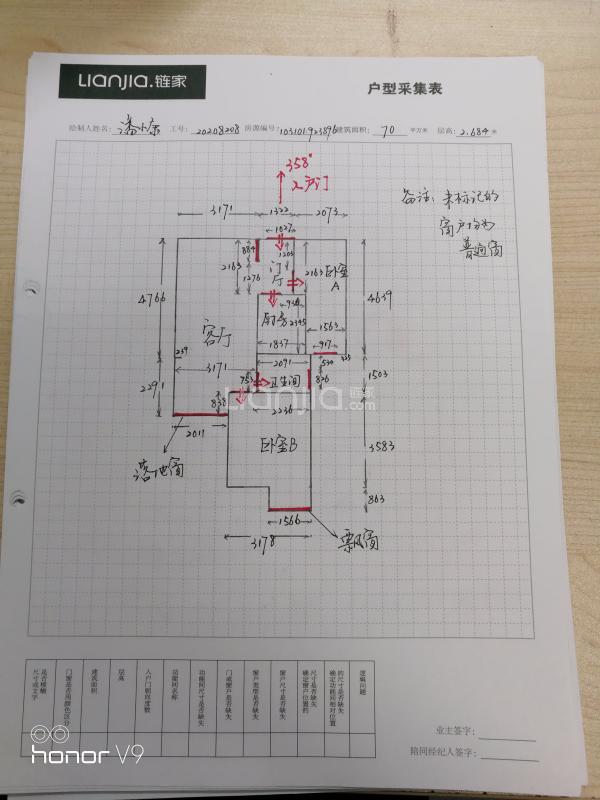 Lianjia.链家
户型采集表
绘制人姓名: 潘小东 工号: 20208208 房源编号: 103101923896 建筑面积: 70 平方米 层高: 2.684 米
358°
入户门
备注: 未标记的
窗户均为
普通窗
3171 1322 2073
1027
884 1205
2163 门厅 2163 卧室A
1276
4766 4639
936
客厅 厨房 2345 1563
1837 917
239 2091 530 325
3171 953 卫生间 826 1503
Lianjia.链家
.com
2291 838 2236
2011 卧室B 3583
落地窗
863
1566
3178 飘窗
是否模糊尺寸或文字
门窗是否用颜色区分
建筑面积
层高
入户门朝向度数
功能间名称
功能间尺寸是否缺失
门或窗户是否缺失
窗户类型是否缺失
窗户尺寸是否缺失
尺寸是否缺失确定窗户位置的
的尺寸是否缺失确定功能间相对位置
逻辑问题
业主签字:
陪同经纪人签字:
honor V9